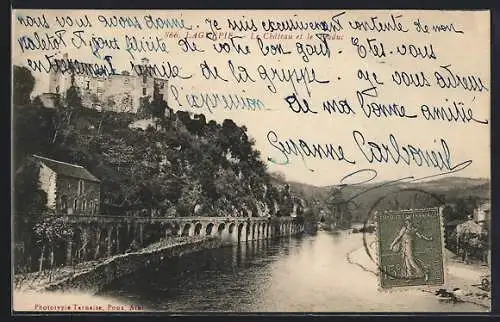 nous vous avons donné. Je suis excessivement contente de mon
866. LAGUÉPIE. — Le Château et le Viaduc
paletot et vous félicite de votre bon goût. Etes-vous
entièrement remise de la grippe. Je vous adresse
l'expression de ma bonne amitié
Suzanne Carbonell
Phototypie Tarnaise, Poux, Albi